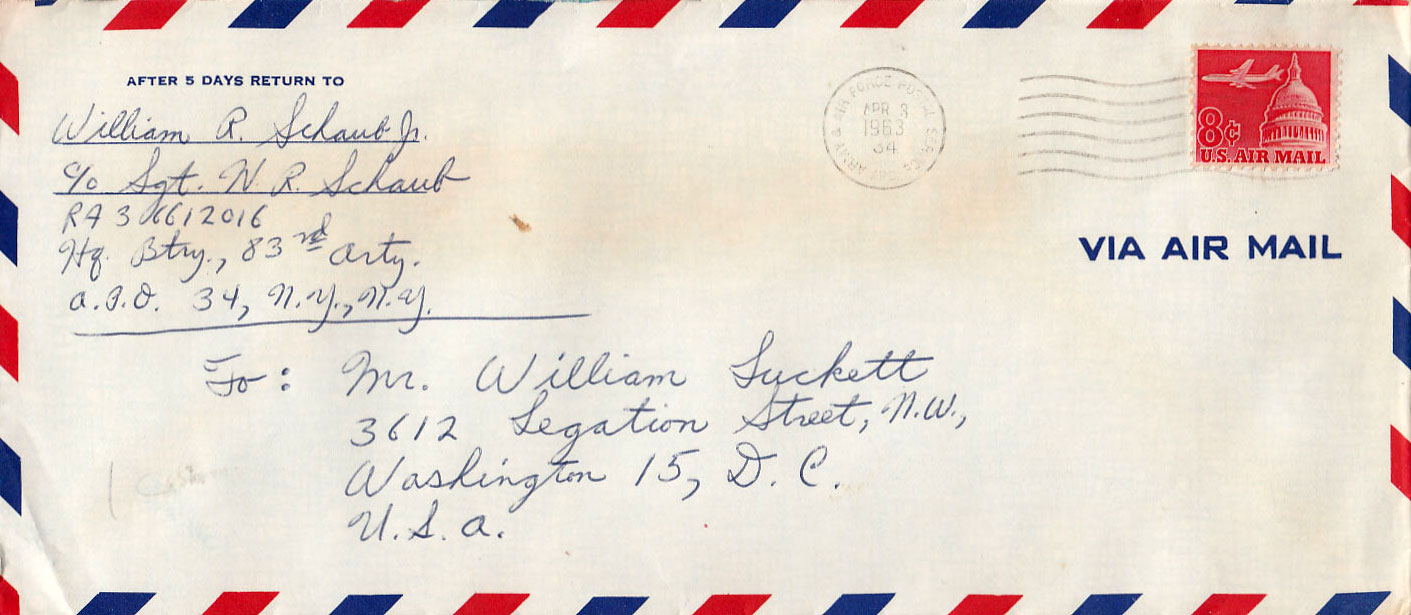 AFTER 5 DAYS RETURN TO
William R. Schaub Jr.
c/o Sgt. W R. Schaub
RA 36612016
Hq. Btry., 83rd Arty.
A.P.O. 34, N.Y., N.Y.
ARMY & AIR FORCE POSTAL SERVICE
APR 3
1963
34
8¢
U.S. AIR MAIL
VIA AIR MAIL
To: Mr. William Luckett
3612 Legation Street, N.W.,
Washington 15, D. C.
U.S.A.